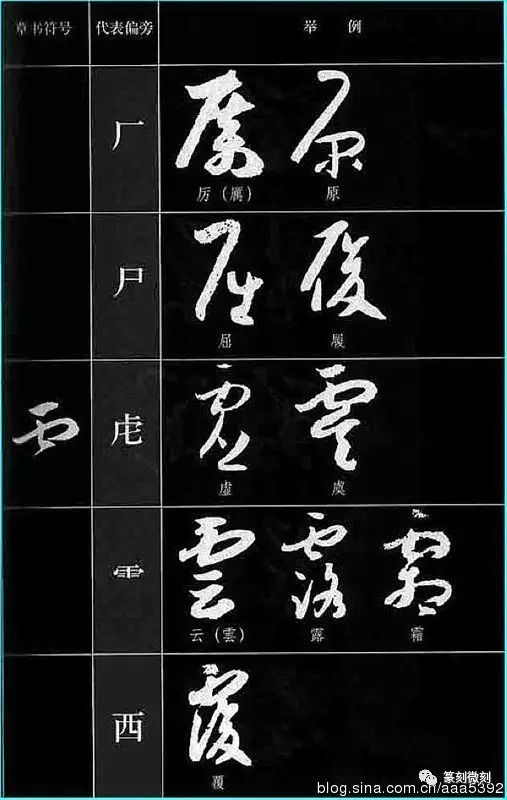 草书符号 代表偏旁 举例
厂
厉（厲） 原
尸
屈 履
虍
虚 虞
⻗
云（雲） 露 霜
西
覆
篆刻微刻
blog.sina.com.cn/aaa5392